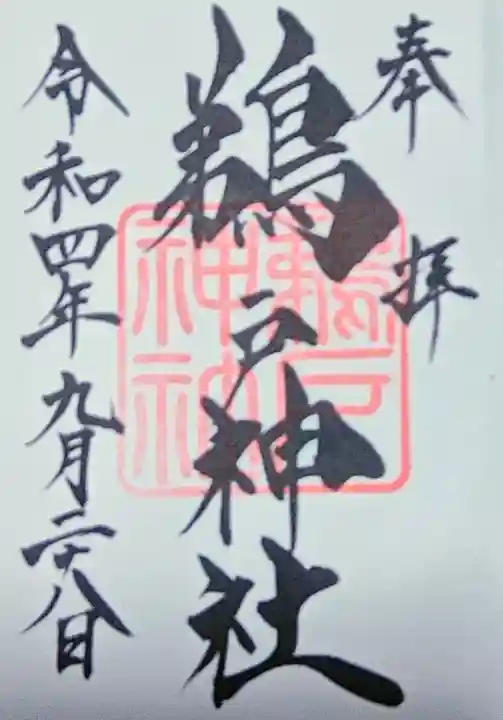 奉拝
鵜戸神社
令和四年九月二十八日
鵜戸
神社